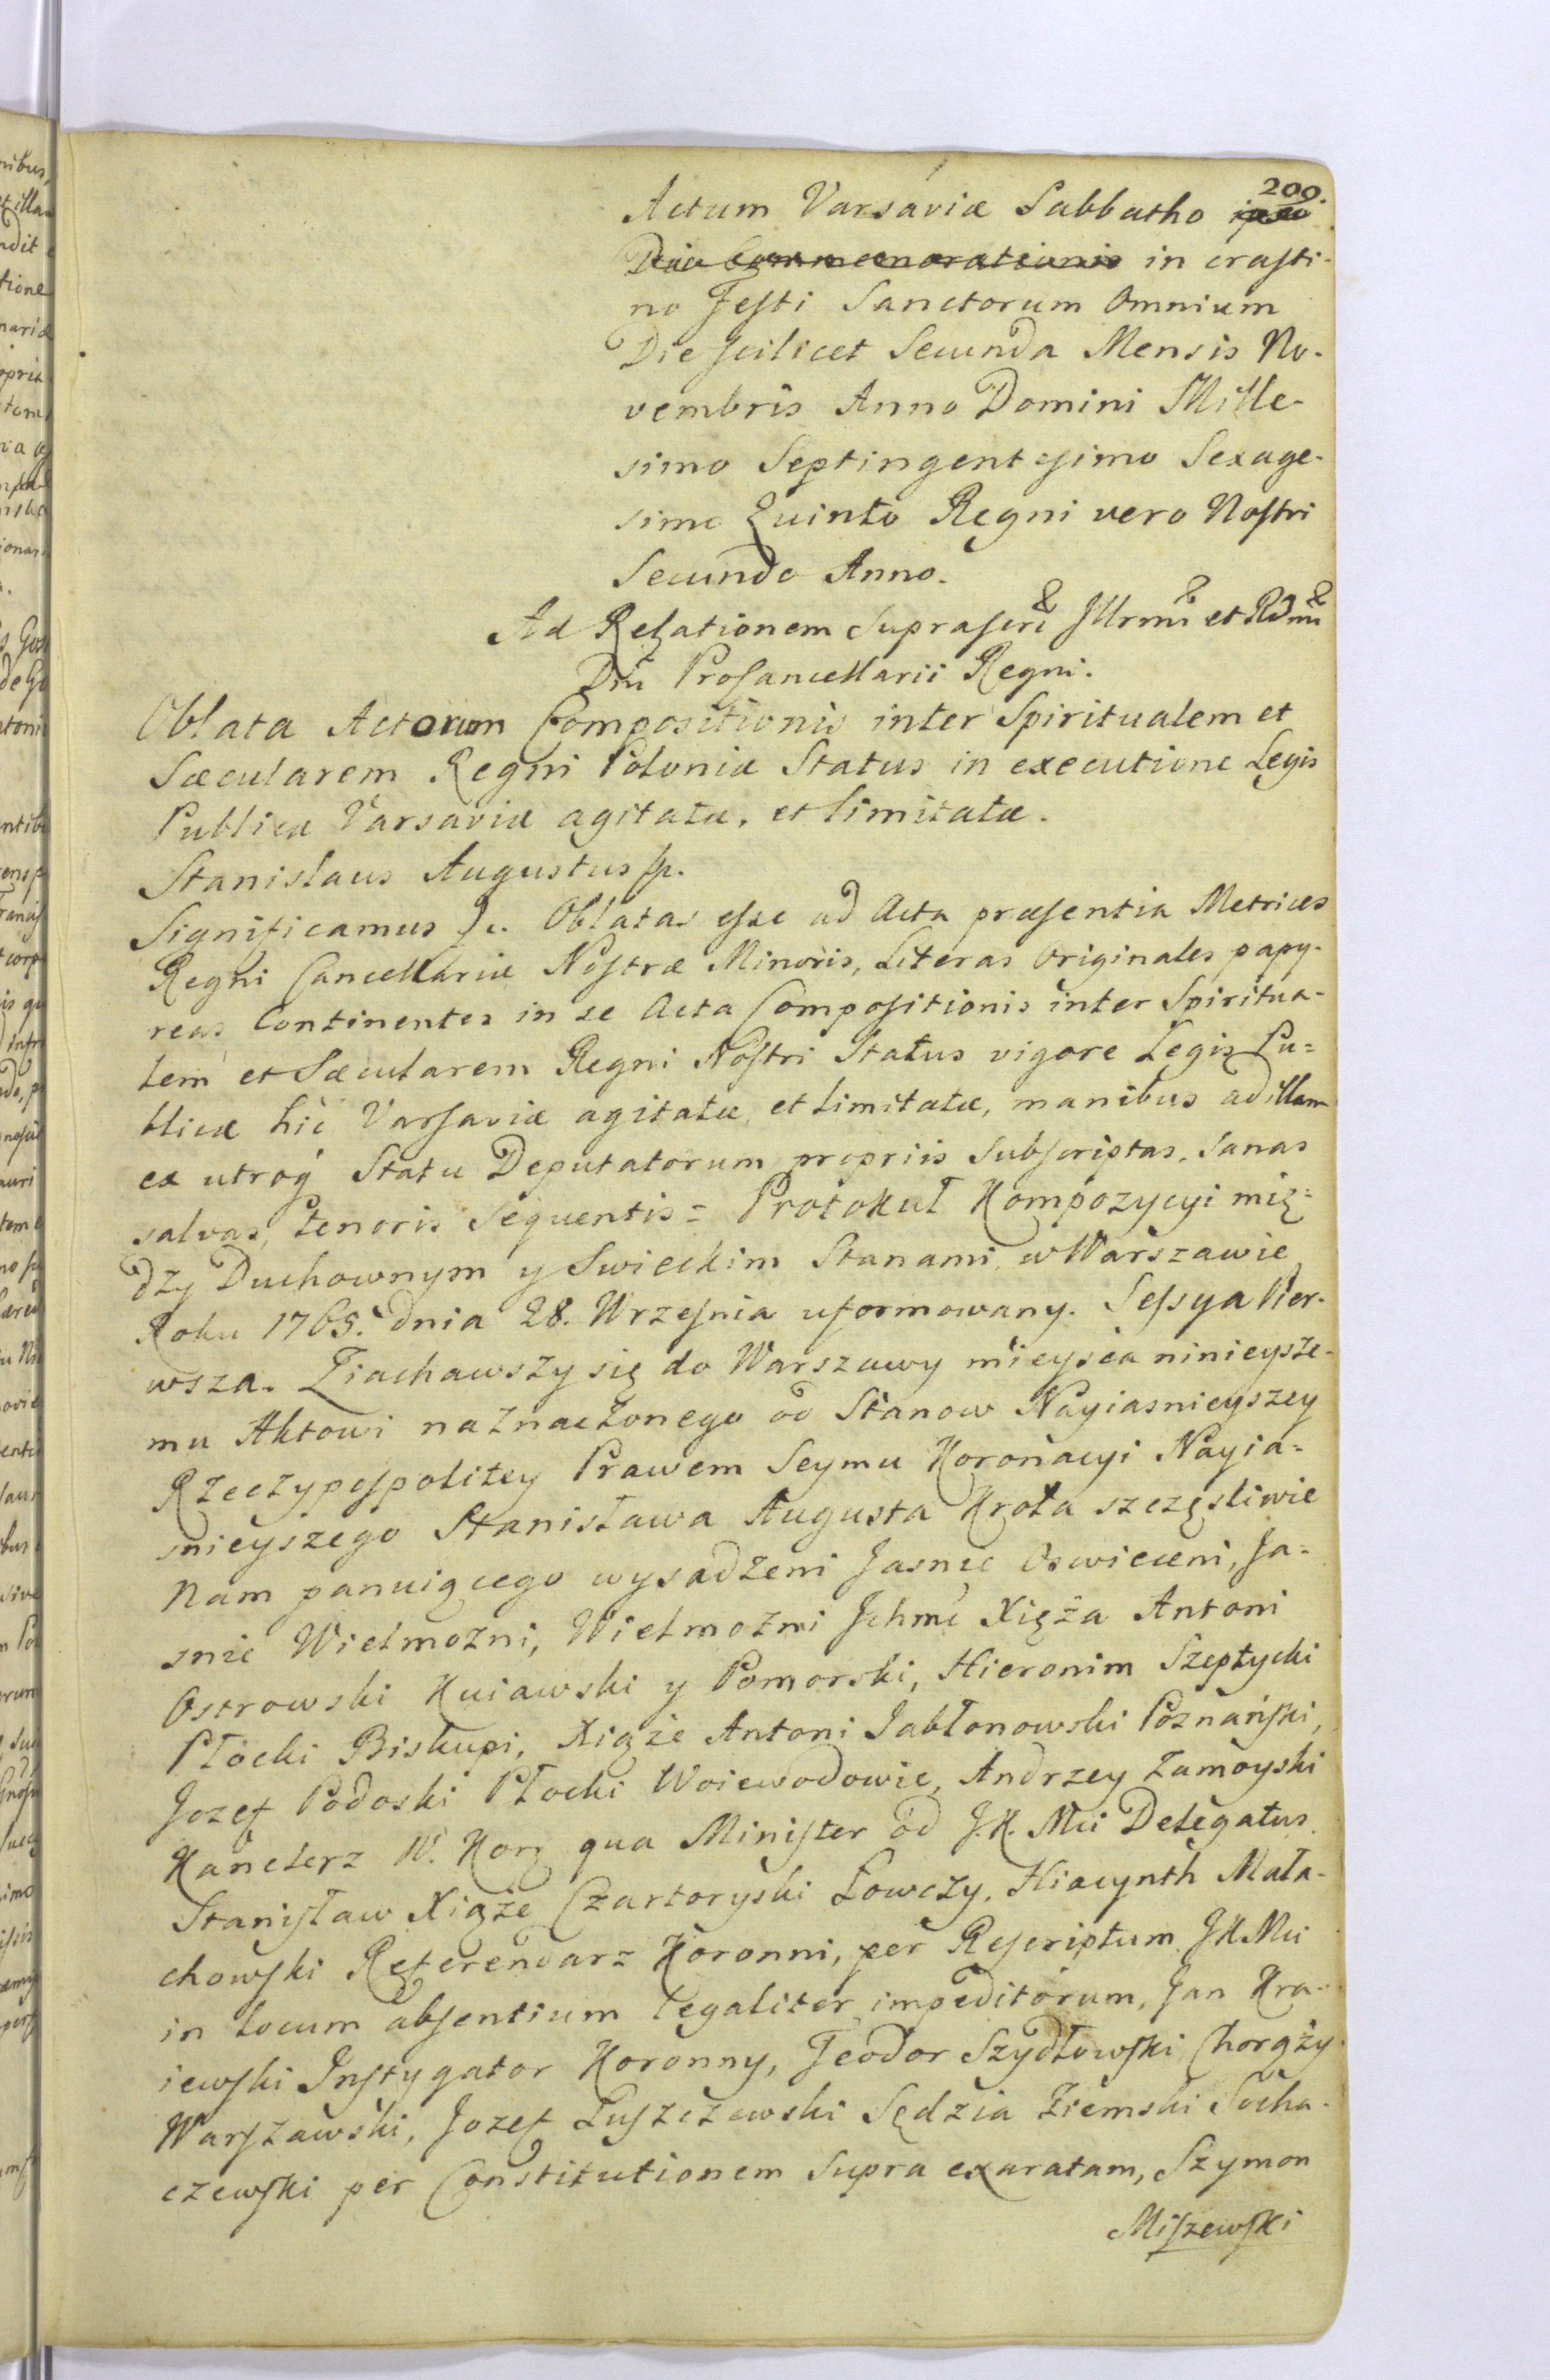 200.
Actum Varsaviæ Sabbatho ipso
Die Commemorationis in crasti-
no Festi Sanctorum Omnium
Die scilicet Secunda Mensis No-
vembris Anno Domini Mille-
simo Septingentesimo Sexage-
simo Quinto Regni vero Nostri
Secundo Anno.
Ad Relationem Suprascri Illrmi et Rdmi
Dni Procancellarii Regni.
Oblata Actorum Compositionis inter Spiritualem et
Sæcularem Regni Poloniæ Status in executione Legis
Publicæ Varsaviæ agitatæ, et limitatæ.
Stanislaus Augustus
Significamus Oblatas esse ad Acta præsentia Metrices
Regni Cancellariæ Nostræ Minoris, Literas Originales papy-
reas Continentes in se Acta Compositionis inter Spiritua-
lem et Sæcularem Regni Nostri Status vigore Legis Pu=
blicæ hic Varsaviæ agitatæ et limitatæ, manibus ad illam
ex utroq Statu Deputatorum propriis Subscriptas, Sanas
salvas, tenoris Sequentis= Protokuł Kompozycyi mię=
dzy Duchownym y Swieckim Stanami w Warszawie
Roku 1765. dnia 28. Wrzesnia uformowany. Sessya Pier-
wsza. Ziachawszy się do Warszawy mieysca ninieysze-
mu Aktowi naznaczonego od Stanow Nayiasnieyszey
Rzeczypospolitey Prawem Seymu Koronacyi Nayia=
snieyszego Stanisława Augusta Krola szczęsliwie
Nam panuiącego wysadzeni Jasnie Oswieceni, Ja=
snie Wielmozni, Wielmozni Jchmć Xięża Antoni
Ostrowski Kuiawski y Pomorski, Hieronim Szeptycki
Płocki Biskupi, Xiąże Antoni Jabłonowski Poznański,
Jozef Podoski Płocki Woiewodowie, Andrzey Zamoyski
Kanclerz W. Kor qua Minister od J.K. Mci Delegatus.
Stanisław Xiąże Czartoryski Łowczy, Hiacynth Mała-
chowski Referendarz Koronni, per Rescriptum JK.Mci
in locum absentium legaliter impeditorum, Jan Kra-
iewski Instygator Koronny, Teodor Szydłowski Chorąży
Warszawski, Jozef Łuszczewski Sędzia Ziemski Socha-
czewski per Constitutionem Supra exaratam, Szymon
Miszewski